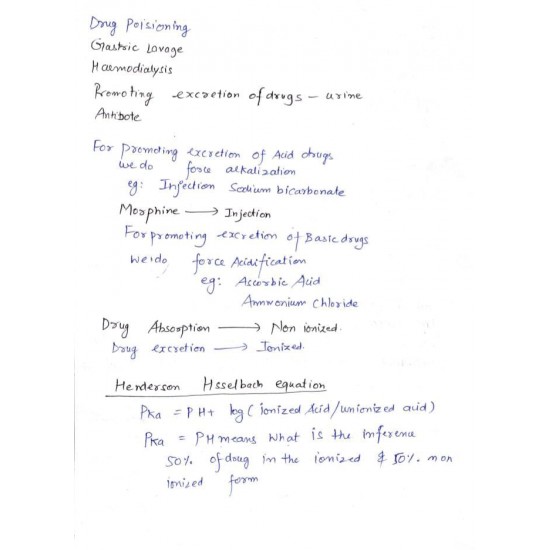 Drug Poisioning
Gastric Lavage
Haemodialysis
Promoting excretion of drugs - urine
Antibote
For promoting excretion of Acid drugs
we do force alkalization
eg: Injection Sodium bicarbonate
Morphine → Injection
For promoting excretion of Basic drugs
we do force Acidification
eg: Ascorbic Acid
Ammonium Chloride
Drug Absorption → Non ionized.
Drug excretion → Ionized.
Henderson Hsselbach equation
Pka = PH + log (ionized Acid/unionized acid)
Pka = PH means What is the inference
50% of drug in the ionized & 50% non
ionized form